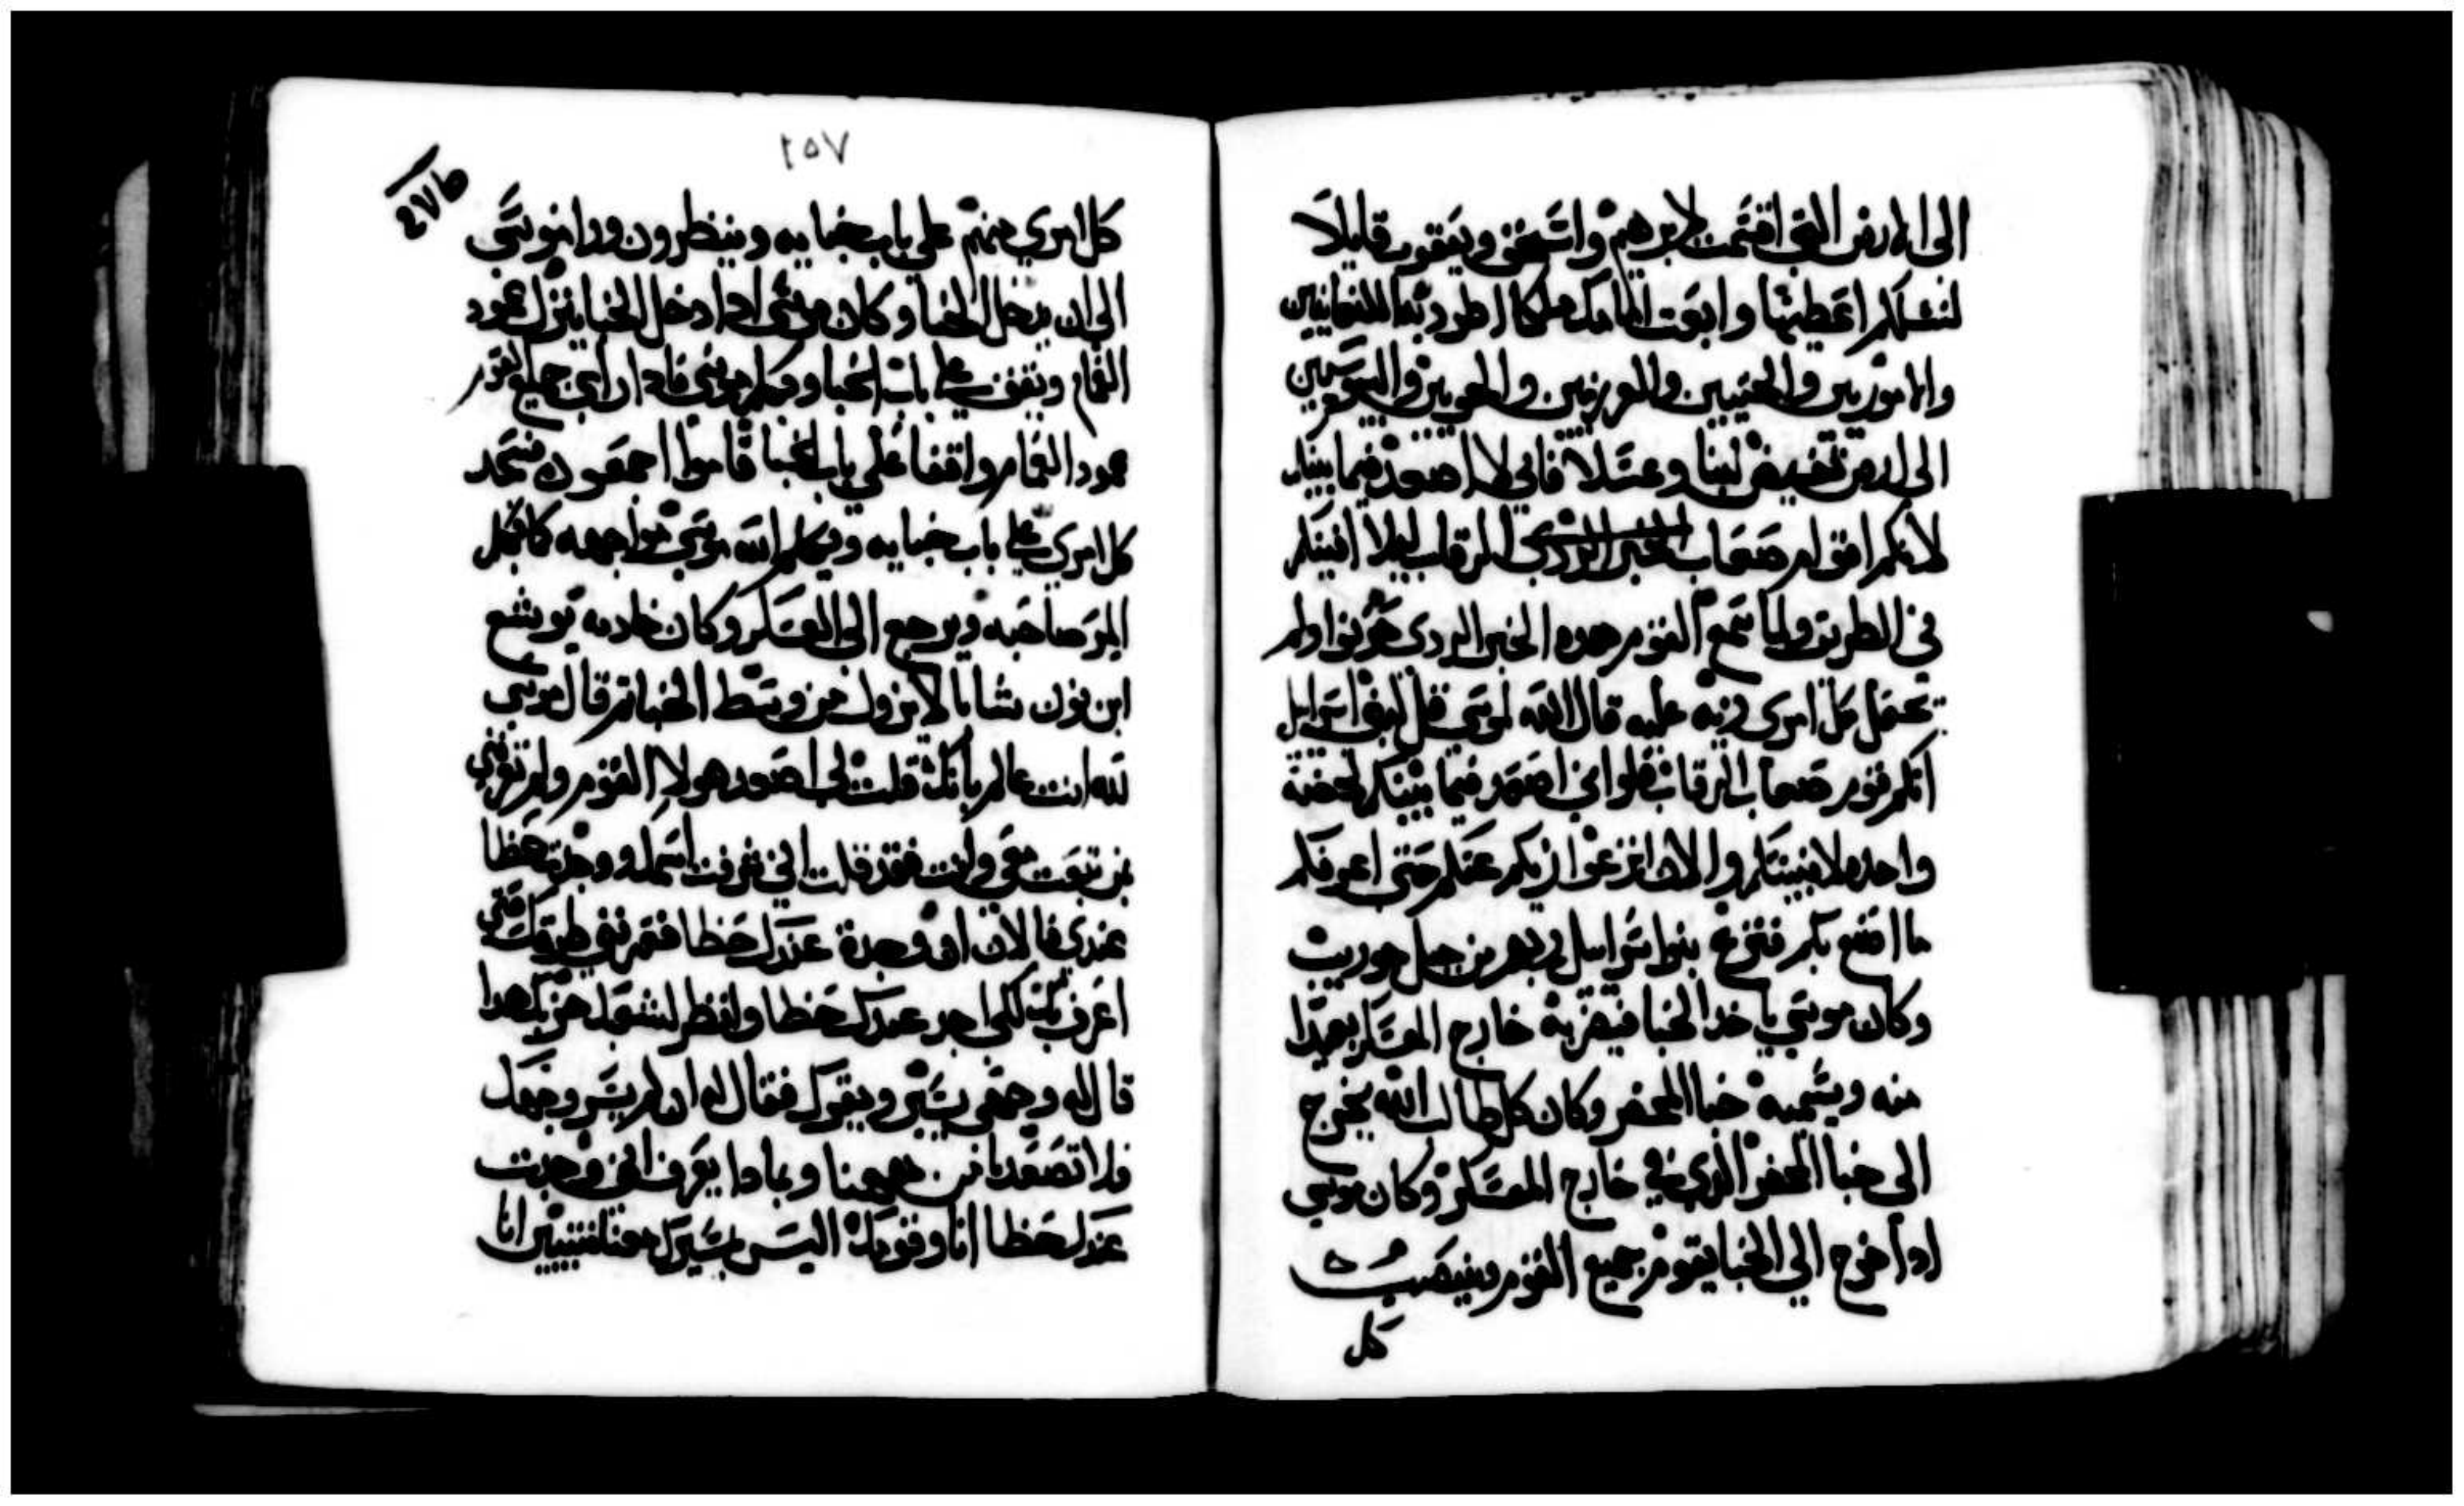 الى الارض التي اقسمت لابرهيم واسحق ويعقوب قايلا
لنسلكم اعطيها وابعت امامك ملكا اطرد به الكنعانيين
والاموريين والحتيين والفرزيين والحويين واليبوسيين
الى ارض تفيض لبنا وعسلا فاني لا اصعد فيما بينكم
لانكم اقوام صعاب الرقاب ليلا افنيكم
في الطريق ولما سمع القوم هده الخبر الردى حزنوا ولم
يجعل كل امرى زيه عليه قال الله لموسى قل لبني اسراييل
انكم قوم صعاب الرقاب فلو اني اصعد فيما بينكم لحضة
واحده لافنيتكم والان انزعوا زيكم عنكم حتى اعرفكم
ما اصنع بكم فنزع بنوا اسراييل زيهم من جبل حوريت
وكان موسي ياخد الخبا فيضربه خارج العسكر بعيدا
منه ويسميه خبا المحضر وكان كل طالب الله يخرج
الى خبا المحضر الدي في خارج العسكر وكان موسي
ادا خرج الي الخبا يقوم جميع القوم وينتصب
كل
٢٥٧
كل امري منهم علي باب خبايه وينظرون ورا موسي
الى ان يدخل الخبا وكان موسى ادا دخل الخبا ينزل عمود
الغمام ويقف على باب الخبا ويكلم موسى فادا راى جميع القوم
عمود الغمام واقفا علي باب الخبا قاموا اجمعون فسجد
كل امرى على باب خبايه ويكلم الله موسي مواجهه كما يكلم
المر صاحبه ويرجع الى العسكر وكان خادمه يوشع
ابن نون شابا لا يزول من وسط الخبا ثم قال موسي
لله انت عالم بانك قلت لي اصعد هولا القوم ولم تعرفني
من تبعت معي وانت فقد قلت اني عرفت اسمك ووجدت حظا
عندي فالان ان وجدة عندك حظا فعرفني طرقك حتي
اعرف بك لكي اجد عندك حظا وانظر لشعبك حزبك هدا
قال له وجهي يسير ويقرك فقال له ان لم يسر وجهك
فلا تصعدنا من ههنا وبمادا يعرف اني وجدت
عندك حظا انا وقومك اليس بمسيرك معنا نتبين انا